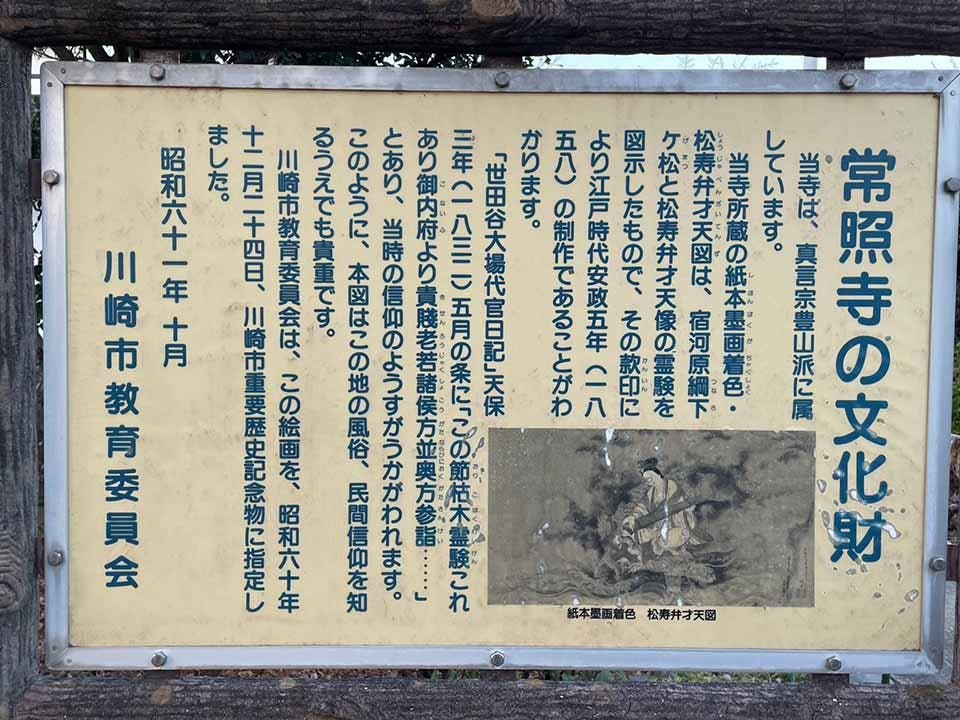 常照寺の文化財
当寺は、真言宗豊山派に属
しています。
当寺所蔵の紙本墨画着色・
松寿弁才天図は、宿河原綱下
ケ松と松寿弁才天像の霊験を
図示したもので、その款印に
より江戸時代安政五年（一八
五八）の制作であることがわ
かります。
「世田谷大場代官日記」天保
三年（一八三二）五月の条に「この節枯木霊験これ
あり御内府より貴賤老若諸侯方並奥方参詣……」
とあり、当時の信仰のようすがうかがわれます。
このように、本図はこの地の風俗、民間信仰を知
るうえでも貴重です。
川崎市教育委員会は、この絵画を、昭和六十年
十二月二十四日、川崎市重要歴史記念物に指定し
ました。
昭和六十一年十月
川崎市教育委員会
紙本墨画着色　松寿弁才天図